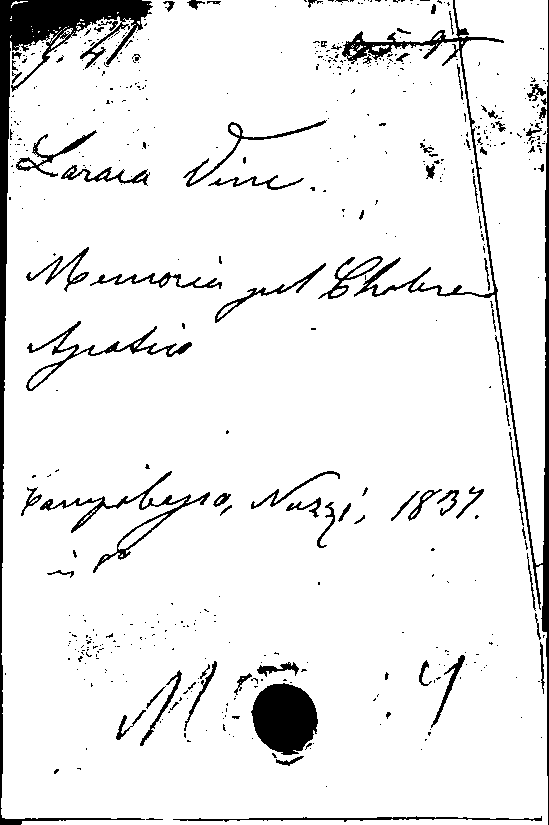 G. 41.
Laraia Vinc.
Memoria sul Cholera
Asiatico
Campobasso, Nuzzi, 1837.
in 8°
M 4